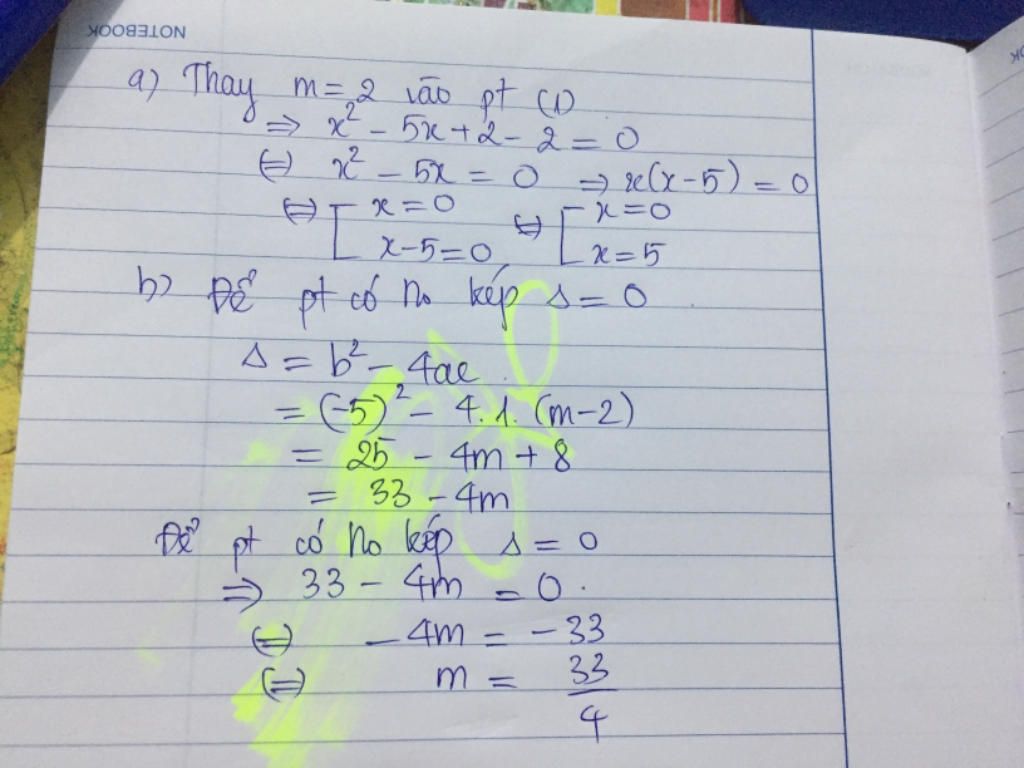 NOTEBOOK
a) Thay m = 2 vào pt (1)
⇒ x² - 5x + 2 - 2 = 0
(=) x² - 5x = 0 ⇒ x(x - 5) = 0
(=) [ x = 0 (=) [ x = 0
x - 5 = 0 x = 5
b) Để pt có No kép Δ = 0
Δ = b² - 4ac
= (-5)² - 4.1.(m - 2)
= 25 - 4m + 8
= 33 - 4m
Để pt có No kép Δ = 0
⇒ 33 - 4m = 0.
(=) - 4m = - 33
(=) m = 33/4